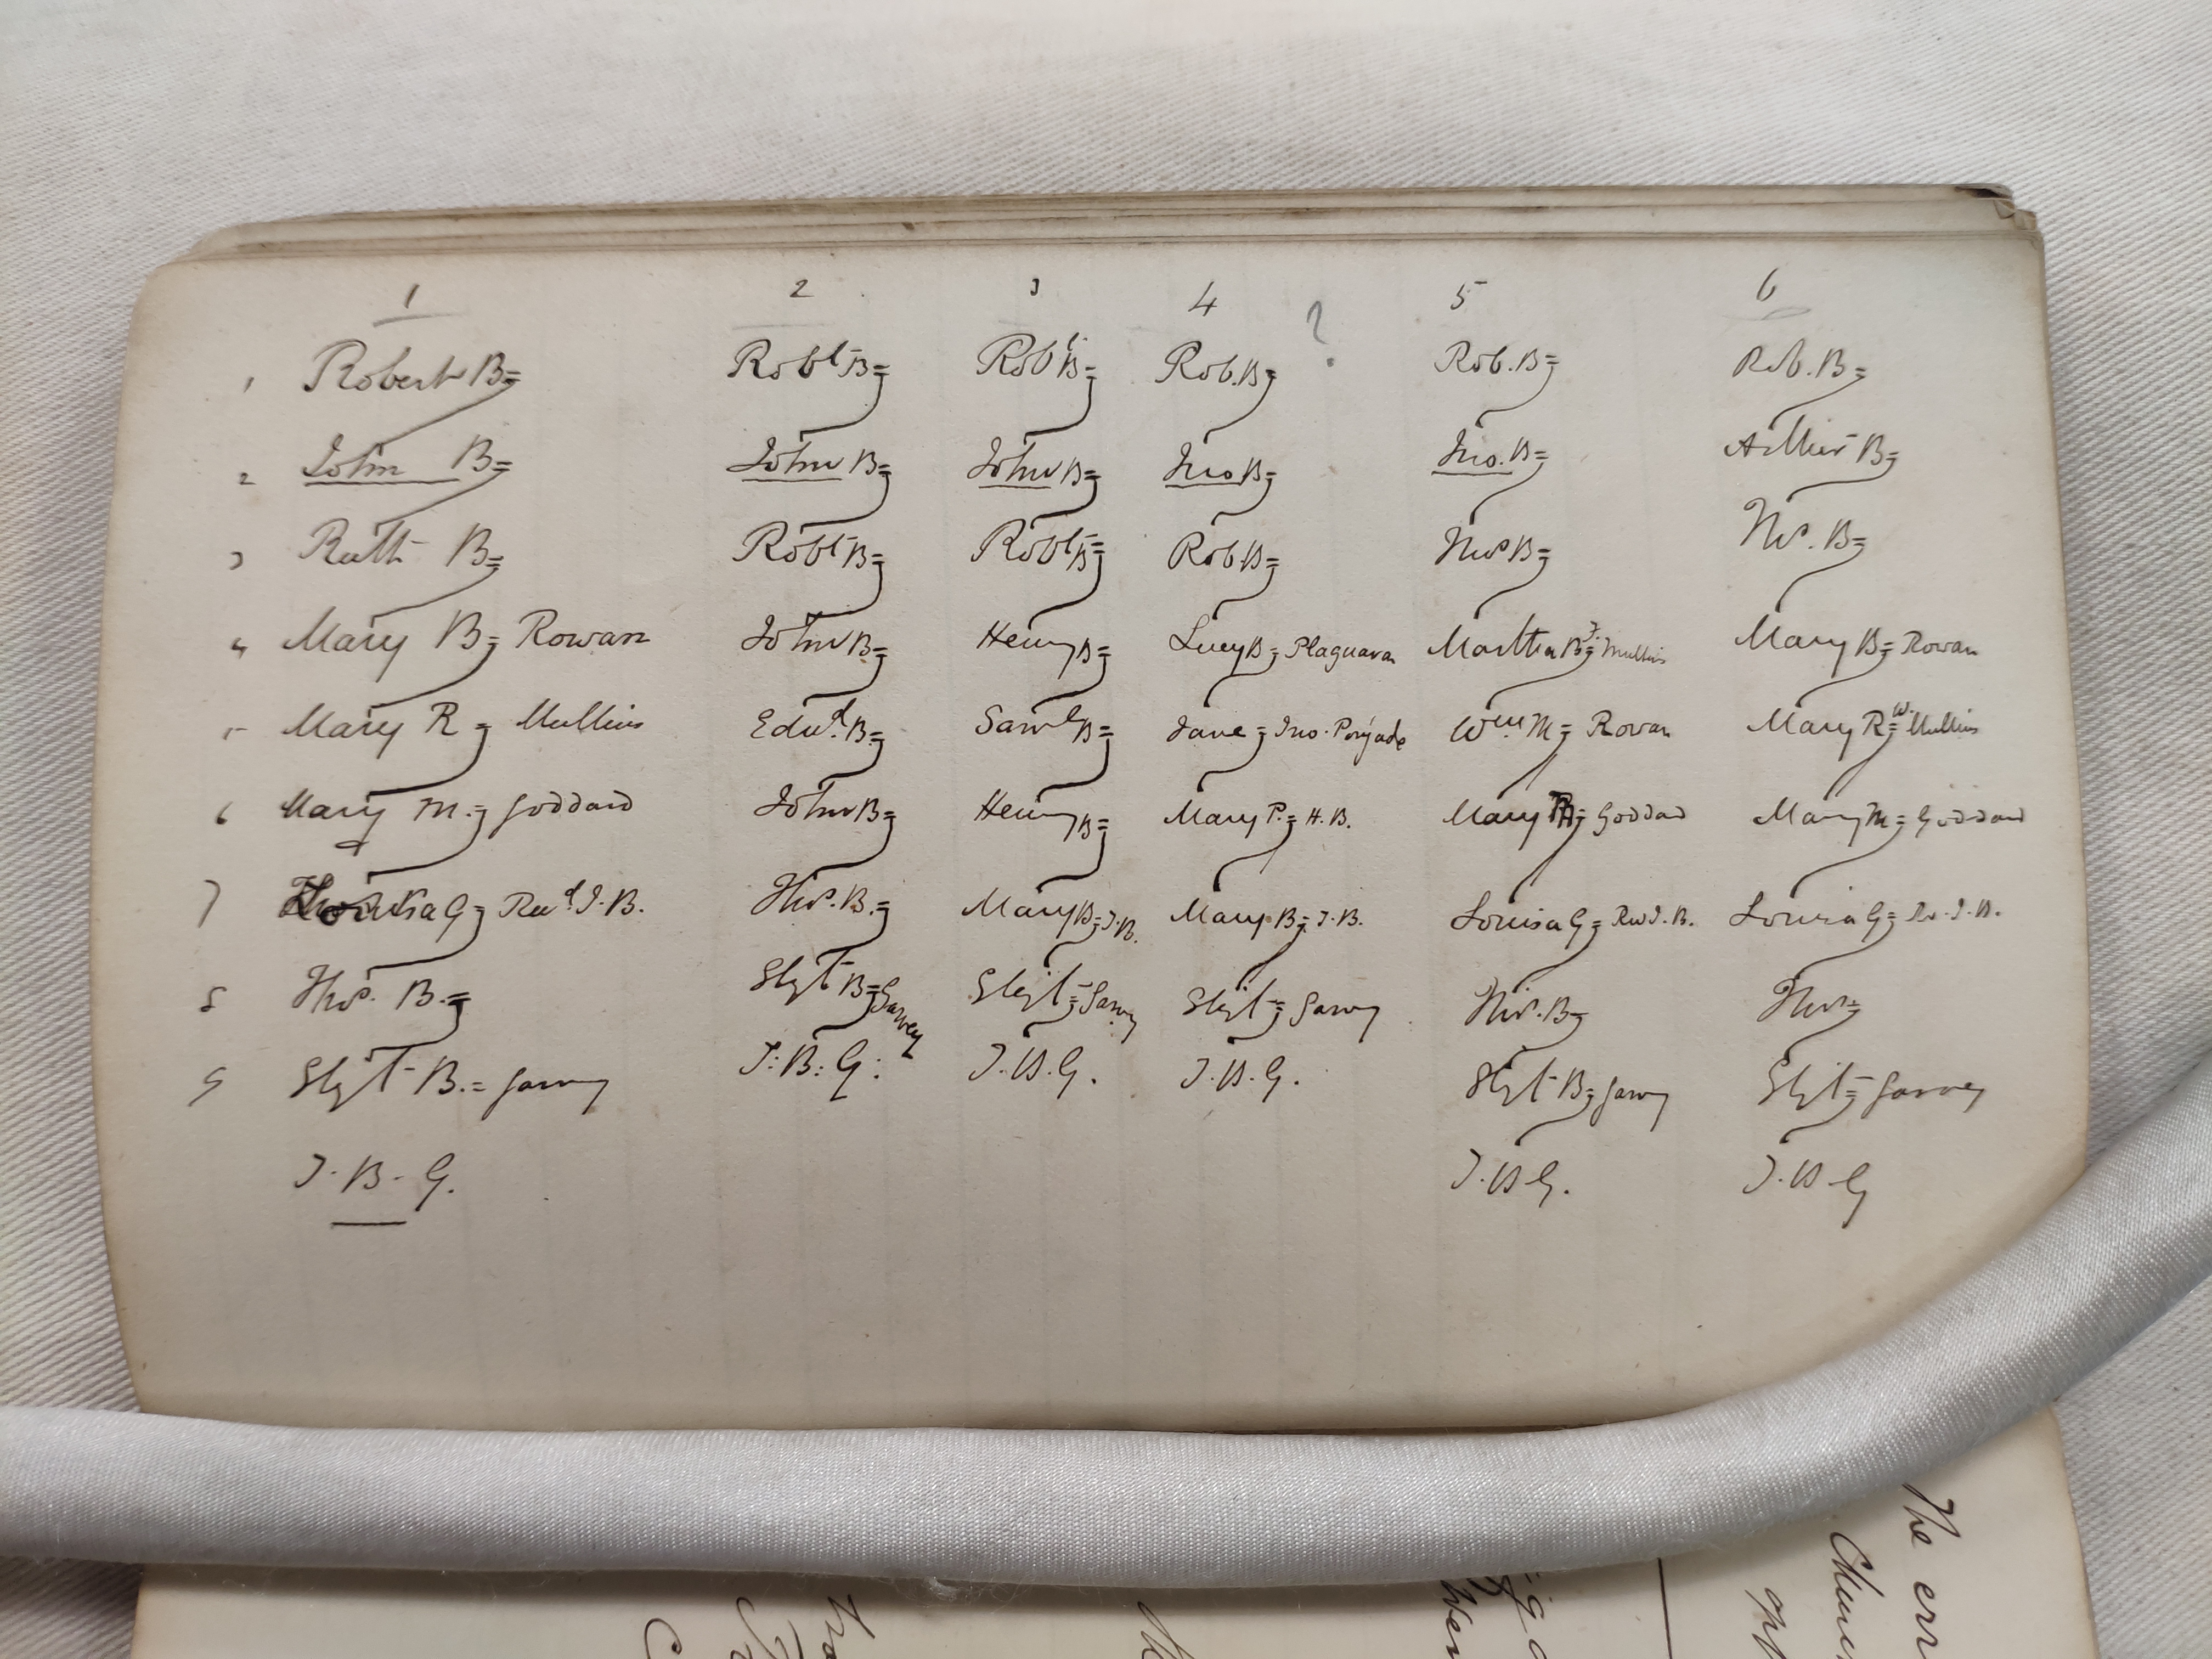 1 2 3 4 ? 5 6
1 Robert B= Robt B= Robt B= Rob. B= Rob. B= Rob. B=
2 John B= John B= John B= Jno B= Jno. B= Arthur B=
3 Ruth B= Robt B= Robt B= Rob B= Thos B= Thos. B=
4 Mary B= Rowan John B= Henry B= Lucy B= Martha B= Mullins Mary B= Rowan
5 Mary R= Mullins Edwd. B= Saml B= Jane = Jno. Wm M= Rowan Mary R= W. Mullins
6 Mary M.= Goddard John B= Henry B= Mary P.= H.B. Mary = Goddard Mary M= Goddard
7 Louisa G= Revd. J.B. Thos. B.= Mary B= J.B. Mary B= J.B. Louisa G= Rev J.B. Louisa G= Rv. J.B.
8 Thos. B.= Elizt B= Garvey Elizt= Garvey Elizt= Garvey Thos. B= Thos=
9 Elizt B.= Garvey T: B: G: T.B.G. T.B.G. Elizt B= Garvey Elizt= Garvey
T. B. G. T.B G. T.B G
The err